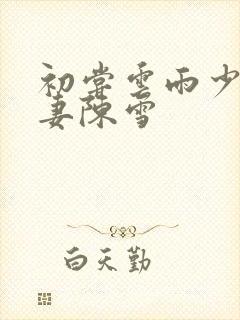 初尝雲雨少
妻陳雪
白天勤